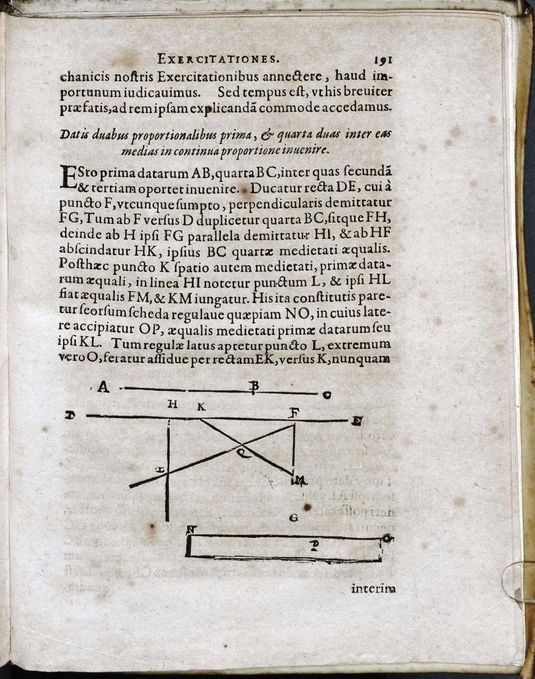 EXERCITATIONES. 191
chanicis nostris Exercitationibus annectere, haud im-
portunum iudicauimus. Sed tempus est, vt his breuiter
præfatis, ad rem ipsam explicandā commode accedamus.
Datis duabus proportionalibus prima, & quarta duas inter eas
medias in continua proportione inuenire.
ESto prima datarum AB, quarta BC, inter quas secundā
& tertiam oportet inuenire. Ducatur recta DE, cui à
puncto F, vtcunque sumpto, perpendicularis demittatur
FG, Tum ab F versus D duplicetur quarta BC, sitque FH,
deinde ab H ipsi FG parallela demittatur HI, & ab HF
abscindatur HK, ipsius BC quartæ medietati æqualis.
Posthæc puncto K spatio autem medietati, primæ data-
rum æquali, in linea HI notetur punctum L, & ipsi HL
fiat æqualis FM, & KM iungatur. His ita constitutis pare-
tur seorsum scheda regulaue quæpiam NO, in cuius late-
re accipiatur OP, æqualis medietati primæ datarum seu
ipsi KL. Tum regulæ latus aptetur puncto L, extremum
vero O, feratur assidue per rectam EK, versus K, nunquam
A B C
D H K F E
L Q M
G
N P O
interim